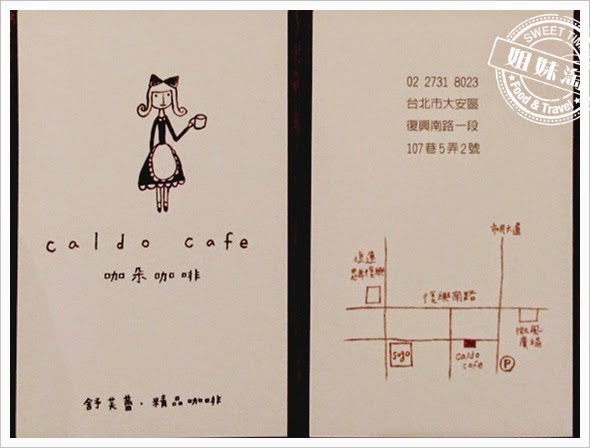 caldo cafe
咖朵咖啡
舒芙蕾．精品咖啡
SWEET TIME
姐妹淘
Food & Travel
02 2731 8023
台北市大安區
復興南路一段
107巷5弄2號
市民大道
捷運
忠孝復興
復興南路
微風
廣場
sogo
caldo
cafe
P